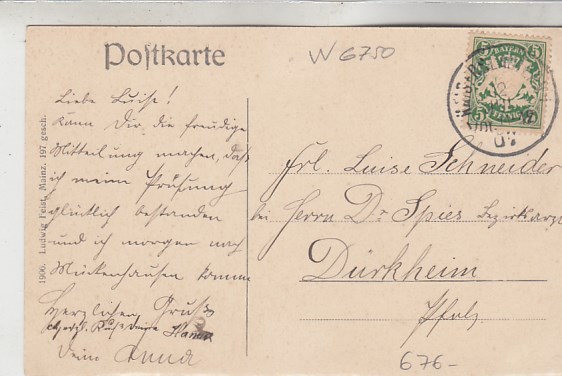 Postkarte
W 6750
Liebe Luise!
Kann Dir die freudige
Mitteilung machen, daß
ich meine Prüfung
glücklich bestanden
und ich morgen nach
Mückenhausen komme
Herzlichen Gruß
Deine Anna
1906. Ludwig Feist, Mainz. 197 gesch.
BAYERN
5 5
5 PFENNIG 5
07
Frl. Luise Schneider
bei Herrn Dr Spies Bezirksarzt
Dürkheim
Pfalz
676-